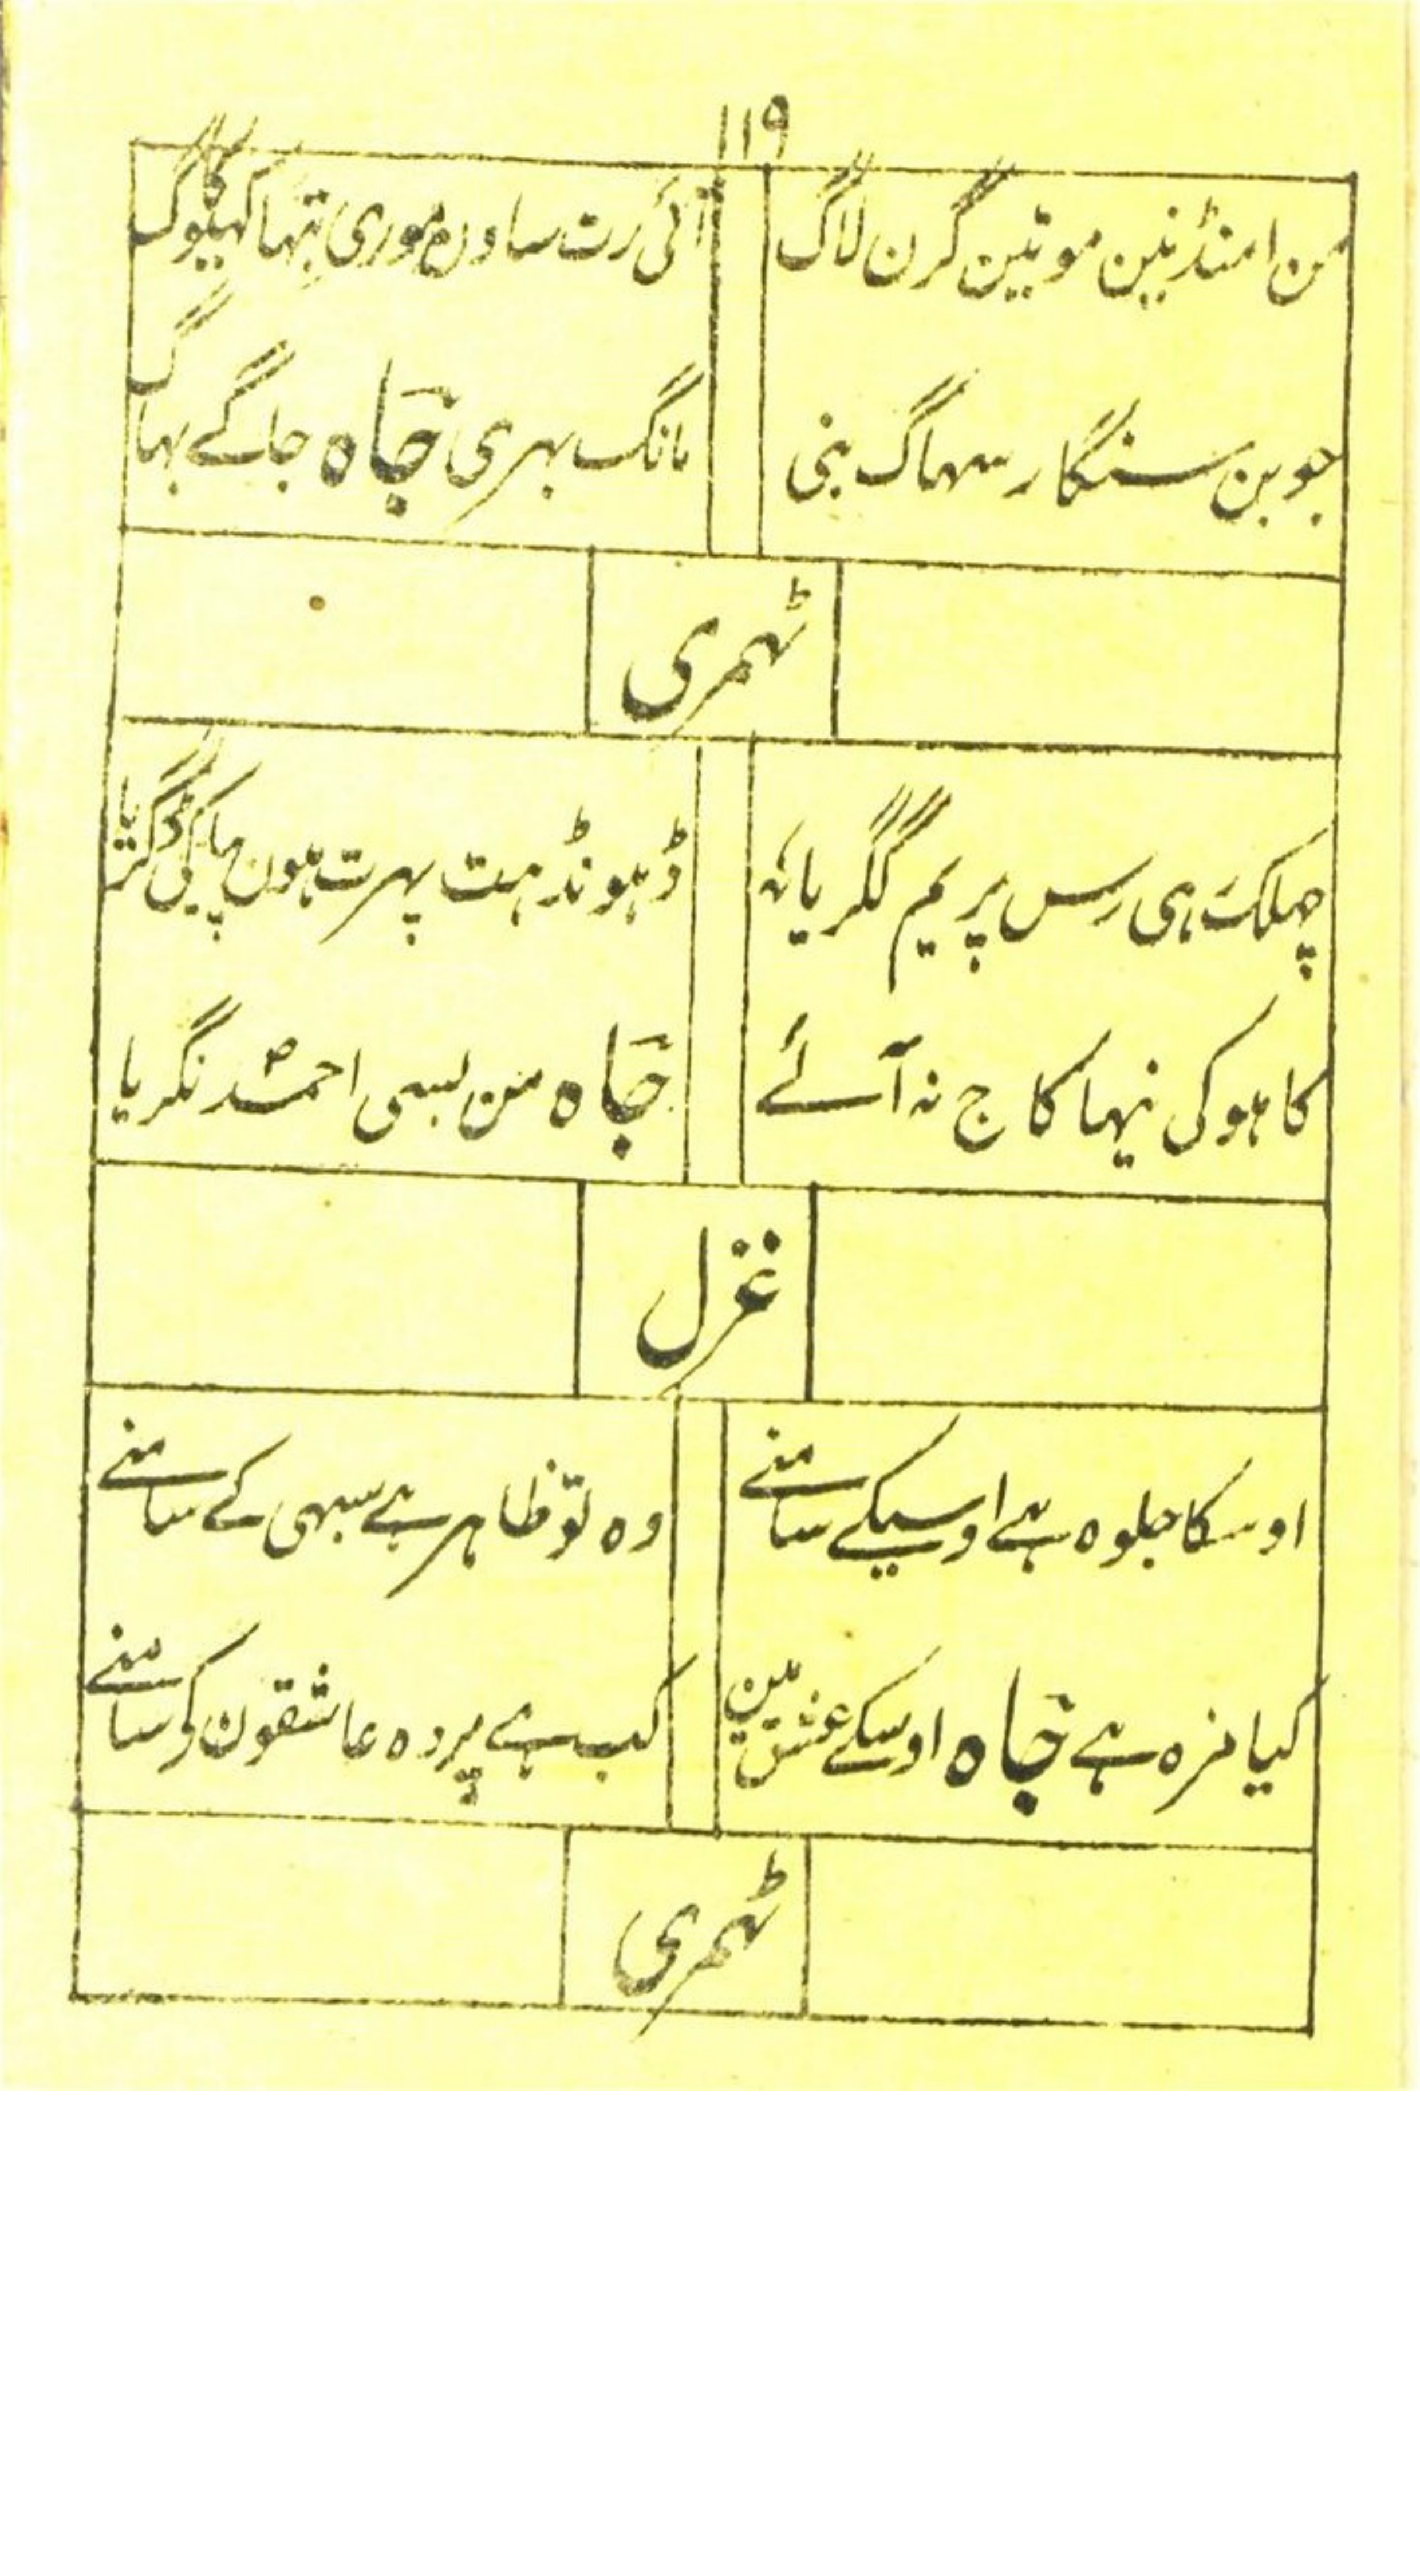 ۱۱۹
من امنڈ نین موتین گرن لاگ
آئی رت ساون موری تہا کہیلو گ
جوبن سنگار سہاگ بنی
مانگ بہری جاہ جاگے بہاگ
ٹہمری
چہلکت ہی رس پریم گگریا
ڈہونڈہت پہرت ہون پیا کی ڈگریا
کاہو کی نیہا کاج نہ آئے
جاہ من بسی احمدؐ نگریا
غزل
اوسکا جلوہ ہے اوسیکے سامنے
وہ تو ظاہر ہے سبہی کے سامنے
کیا مزہ ہے جاہ اوسکے عشق مین
کب ہے پردہ عاشقون کو سامنے
ٹہمری